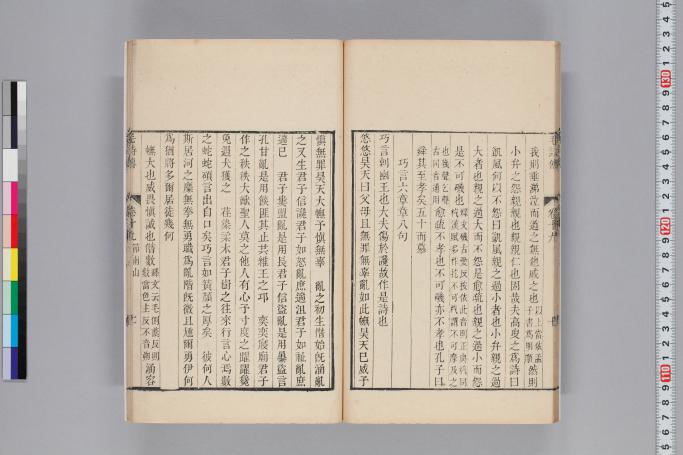 我則垂涕泣而道之無他戚之也以上當依孟然則
小弁之怨親親也親親仁也固哉夫高叟之爲詩曰
凱風何以不怨曰凱風親之過小者也小弁親之過
大者也親之過大而不怨是愈疏也親之過小而怨
是不可磯也
愈疏不孝也不可磯亦不孝也孔子曰
舜其至孝矣五十而慕
巧言六章章八句
巧言刺幽王也大夫傷於讒故作是詩也
悠悠昊天曰父母且無罪無辜亂如此憮昊天已威予
愼無罪昊天大憮予愼無辜 亂之初生僭始旣涵亂
之又生君子信讒君子如怒亂庶遄沮君子如祉亂庶
遄已 君子屢盟亂是用長君子信盜亂是用暴盜言
孔甘亂是用餤匪其止共維王之邛 奕奕寢廟君子
作之秩秩大猷聖人莫之他人有心予忖度之躍躍毚
兔遇犬獲之 荏染柔木君子樹之往來行言心焉數
之蛇蛇碩言出自口矣巧言如簧顏之厚矣 彼何人
斯居河之麋無拳無勇職爲亂階旣微且尰爾勇伊何
爲猶將多爾居徒幾何
憮大也威畏愼誠也僭數涵容
卷十九